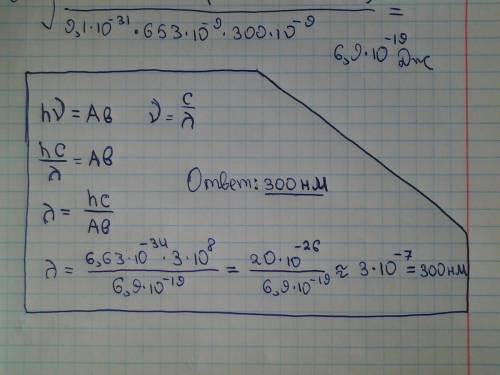 9,1·10⁻³¹·663·10⁻⁹·300·10⁻⁹ =
6,9·10⁻¹⁹ Дж
hν = Aв ν = c/λ
hc/λ = Aв
Ответ: 300 нм
λ = hc/Aв
λ = 6,63·10⁻³⁴·3·10⁸/6,9·10⁻¹⁹ = 20·10⁻²⁶/6,9·10⁻¹⁹ ≈ 3·10⁻⁷ = 300 нм